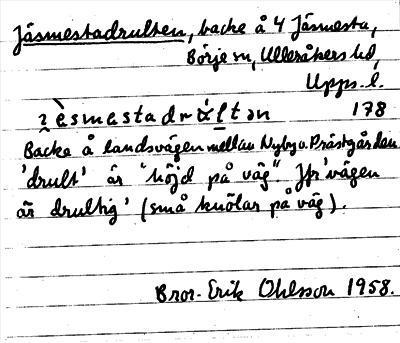 Jäsmestadrulten, backe å 4 Jäsmesta,
Börje sn, Ulleråkers hd,
Upps. l.
178
Backe å landsvägen mellan Nyby o. Prästgården
'drult' är "höjd på väg". Jfr 'vägen
är drultig' (små knölar på väg).
Bror-Erik Ohlsson 1958.